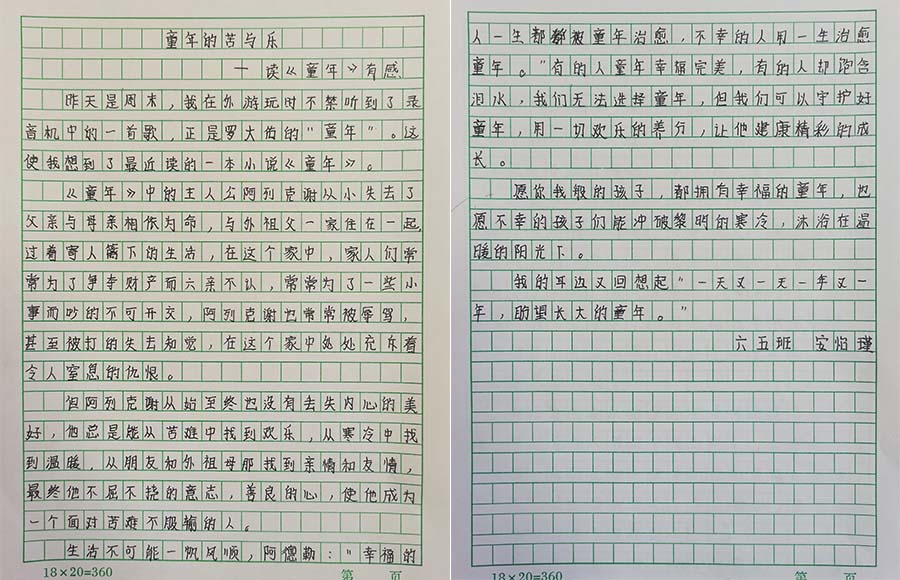 童年的苦与乐
—读《童年》有感
昨天是周末，我在外游玩时不禁听到了录
音机中的一首歌，正是罗大佑的"童年"。这
使我想到了最近读的一本小说《童年》。
《童年》中的主人公阿列克谢从小失去了
父亲与母亲相依为命，与外祖父一家住在一起，
过着寄人篱下的生活，在这个家中，家人们常
常为了争夺财产而六亲不认，常常为了一些小
事而吵的不可开交，阿列克谢也常常被辱骂，
甚至被打的失去知觉，在这个家中处处充斥着
令人窒息的仇恨。
但阿列克谢从始至终也没有丢失内心的美
好，他总是能从苦难中找到欢乐，从寒冷中找
到温暖，从朋友和外祖母那找到亲情和友情，
最终他不屈不挠的意志，善良的心，使他成为
一个面对苦难不服输的人。
生活不可能一帆风顺，阿德勒："幸福的
18×20=360 第 页
人一生都被童年治愈，不幸的人用一生治愈
童年。"有的人童年幸福完美，有的人却饱含
泪水，我们无法选择童年，但我们可以守护好
童年，用一切欢乐的养分，让他健康精彩的成
长。
愿你我般的孩子，都拥有幸福的童年，也
愿不幸的孩子们能冲破黎明的寒冷，沐浴在温
暖的阳光下。
我的耳边又回想起"一天又一天一年又一
年，盼望长大的童年。"
六五班 安焰瑾
18×20=360 第 页